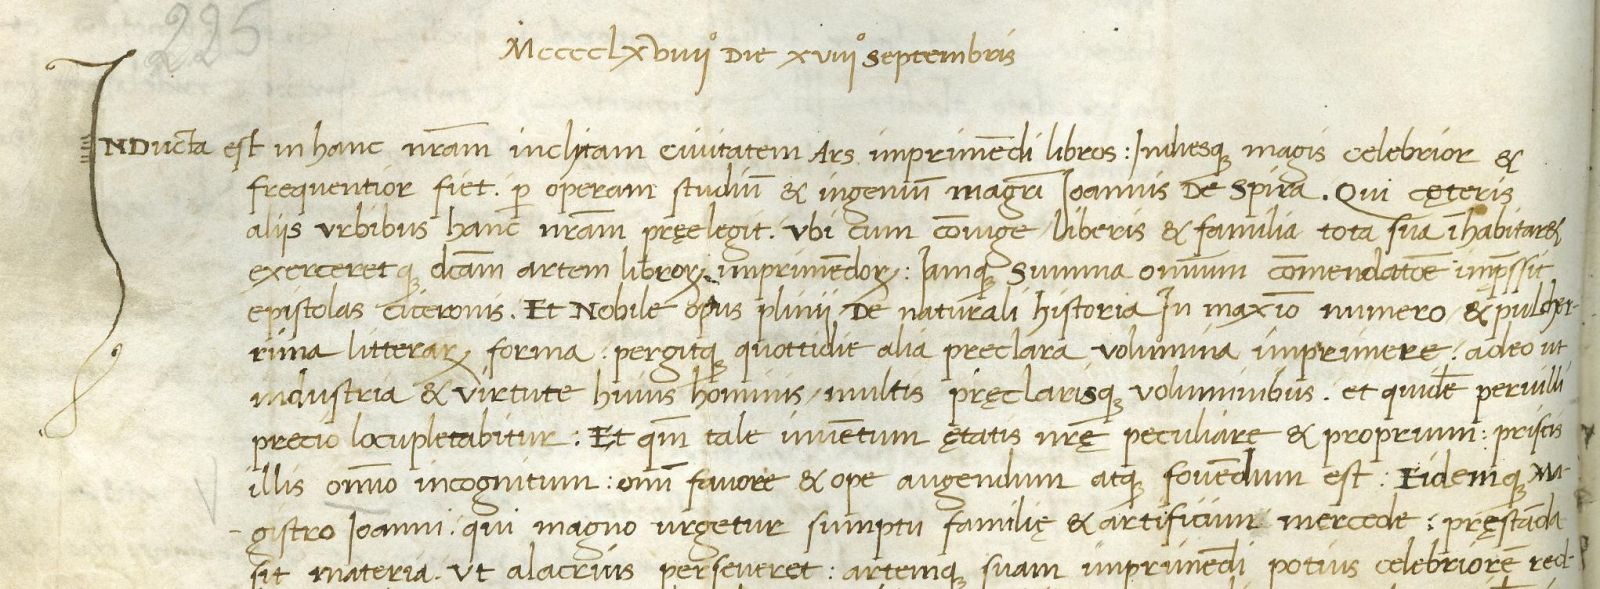 225
MccccLxviiii° Die xviii° Septembris
INDucta est in hanc nr̄am inclytam ciuitatem Ars imprimēdi libros: Indiesq; magis celebrior &
frequentior fiet. p̱ operam studiū & ingeniū magrī Ioannis De Spira. Qui cęteris
aliis vrbibus hanc nr̄am pręelegit. vbi cum cōiuge / liberis & familia tota sua īhabitaret
exerceretq; dc̄am artem libroꝝ imprimēdoꝝ: Iamq; Summa omnium cōmendatōe imp̄ssit
epistolas Ciceronis. Et Nobile opus plinij De naturali historia In maxīo numero / & pulcher-
rima litteraꝝ forma: pergitq; quottidie alia preclara volumina imprimere: adeo ut
industria & virtute huius hominis / multis pręclarisq; voluminibus. et quidē peruili
precio locupletabitur: Et qm̄ tale inuētum ętatis nr̄ę peculiare & proprium: priscis
illis omīo incognitum: omī fauore & ope augendum atq; fouēdum est: Eidemq; Ma-
gistro Ioanni. qui magno urgetur sumptu familię & artificium mercede: pręstāda
sit materia. Vt alacrius perseueret: artemq; suam imprimēdi potius celebriorē red-